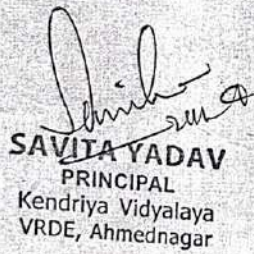 SAVITA YADAV
PRINCIPAL
Kendriya Vidyalaya
VRDE, Ahmednagar